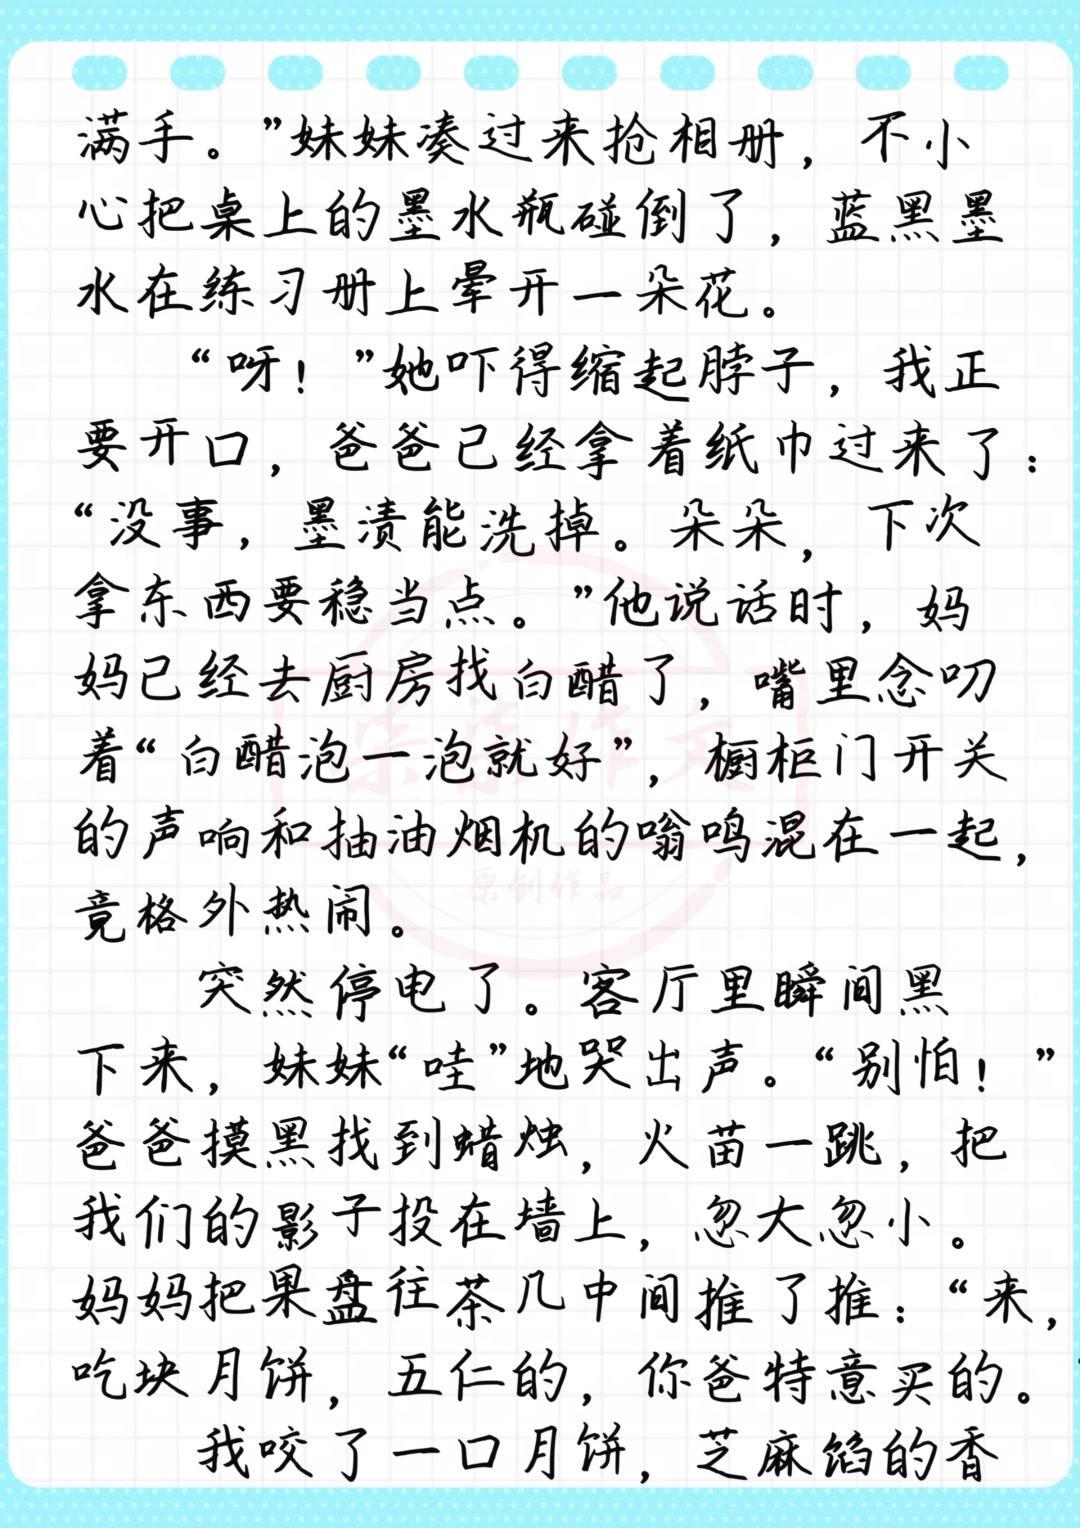 满手。”妹妹凑过来抢相册，不小
心把桌上的墨水瓶碰倒了，蓝黑墨
水在练习册上晕开一朵花。
“呀！”她吓得缩起脖子，我正
要开口，爸爸已经拿着纸巾过来了：
“没事，墨渍能洗掉。朵朵，下次
拿东西要稳当点。”他说话时，妈
妈已经去厨房找白醋了，嘴里念叨
着“白醋泡一泡就好”，橱柜门开关
的声响和抽油烟机的嗡鸣混在一起，
竟格外热闹。
突然停电了。客厅里瞬间黑
下来，妹妹“哇”地哭出声。“别怕！”
爸爸摸黑找到蜡烛，火苗一跳，把
我们的影子投在墙上，忽大忽小。
妈妈把果盘往茶几中间推了推：“来，
吃块月饼，五仁的，你爸特意买的。
我咬了一口月饼，芝麻馅的香
柒柒作文
原创作品